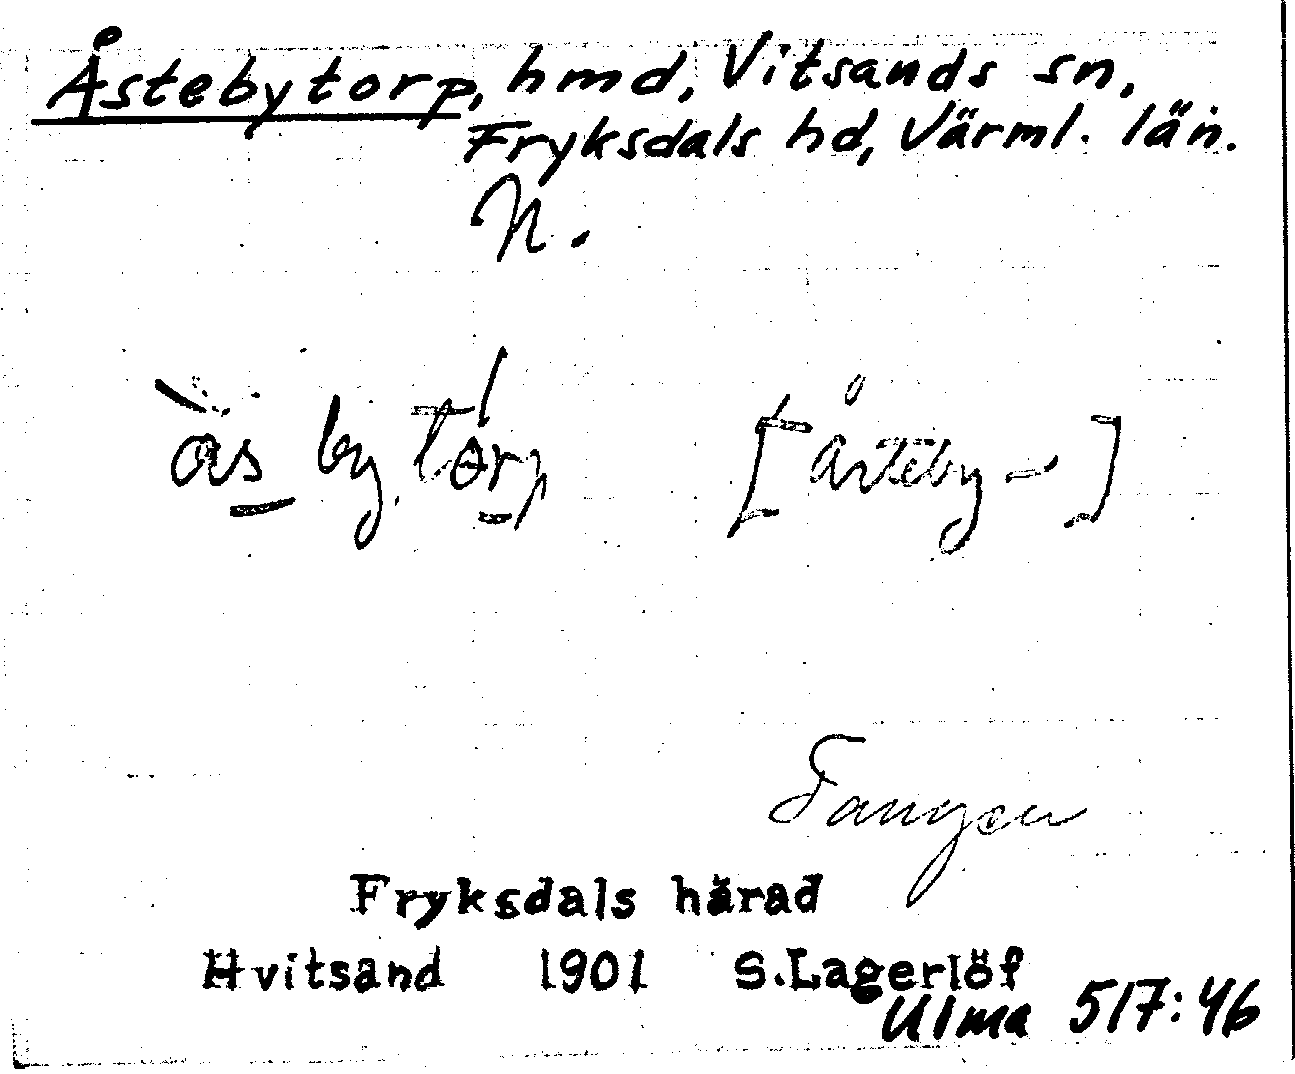 Åstebytorp, hmd, Vitsands sn,
Fryksdals hd, Värml. län.
N.
ås by, tòrp [Åsteby-]
Tangen
Fryksdals härad
Hvitsand 1901 S.Lagerlöf
Ulma 517:46